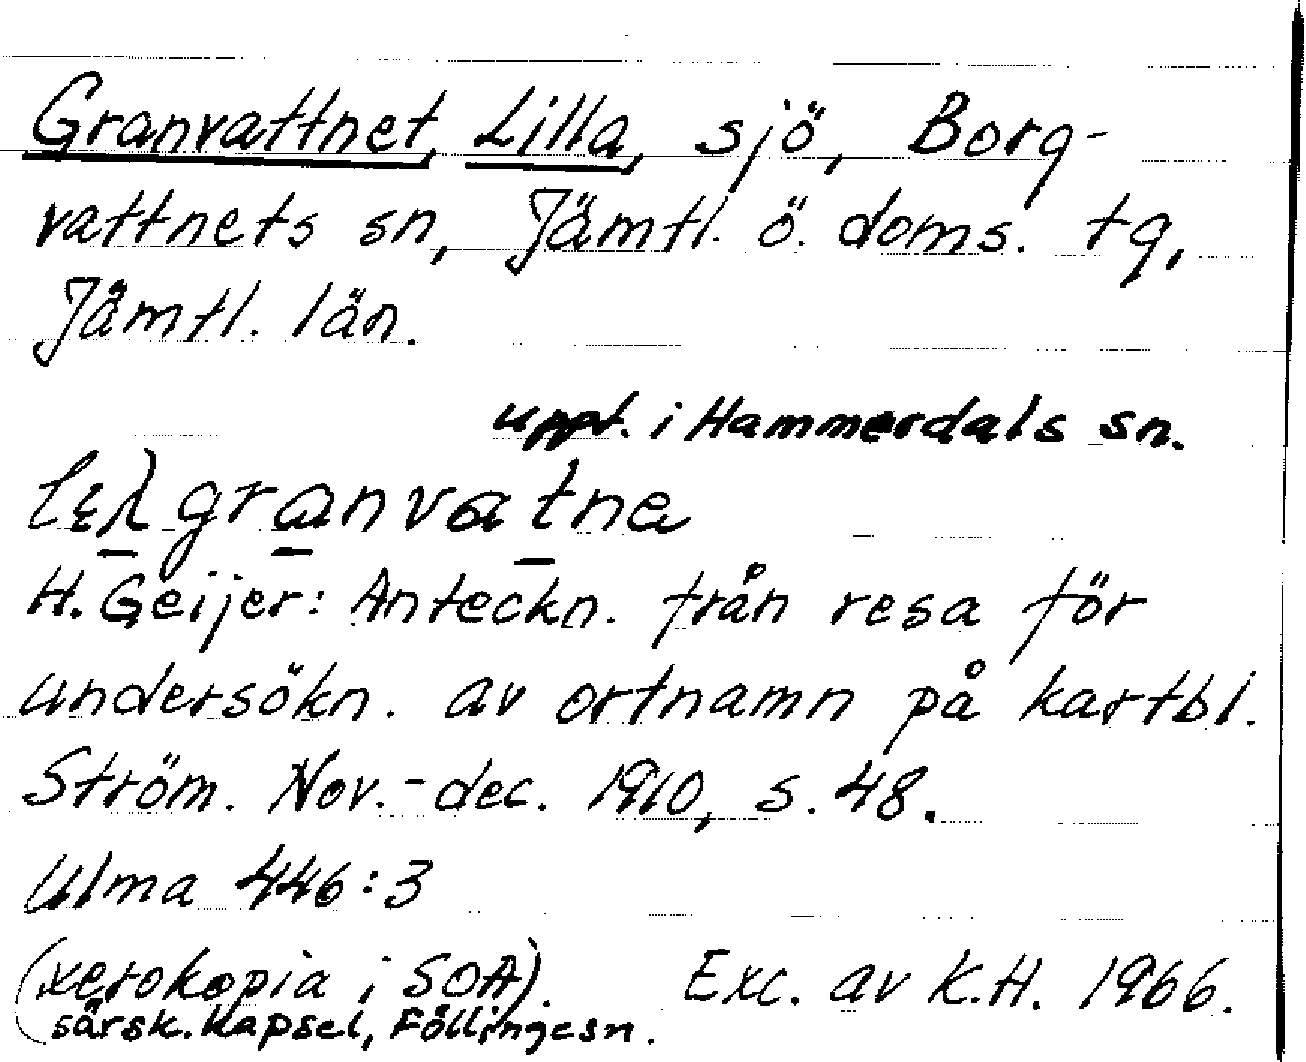 Granvattnet, Lilla, sjö, Borg-
vattnets sn, Jämtl. ö. doms. tg,
Jämtl. län.
uppt. i Hammerdals sn.
granvatne
H. Geijer: Anteckn. från resa för
undersökn. av ortnamn på kartbl.
Ström. Nov.-dec. 1910, s. 48.
Ulma 446:3
(xerokopia i SOA). Exc. av K.H. 1966.
(särsk. kapsel, Föllinge sn.